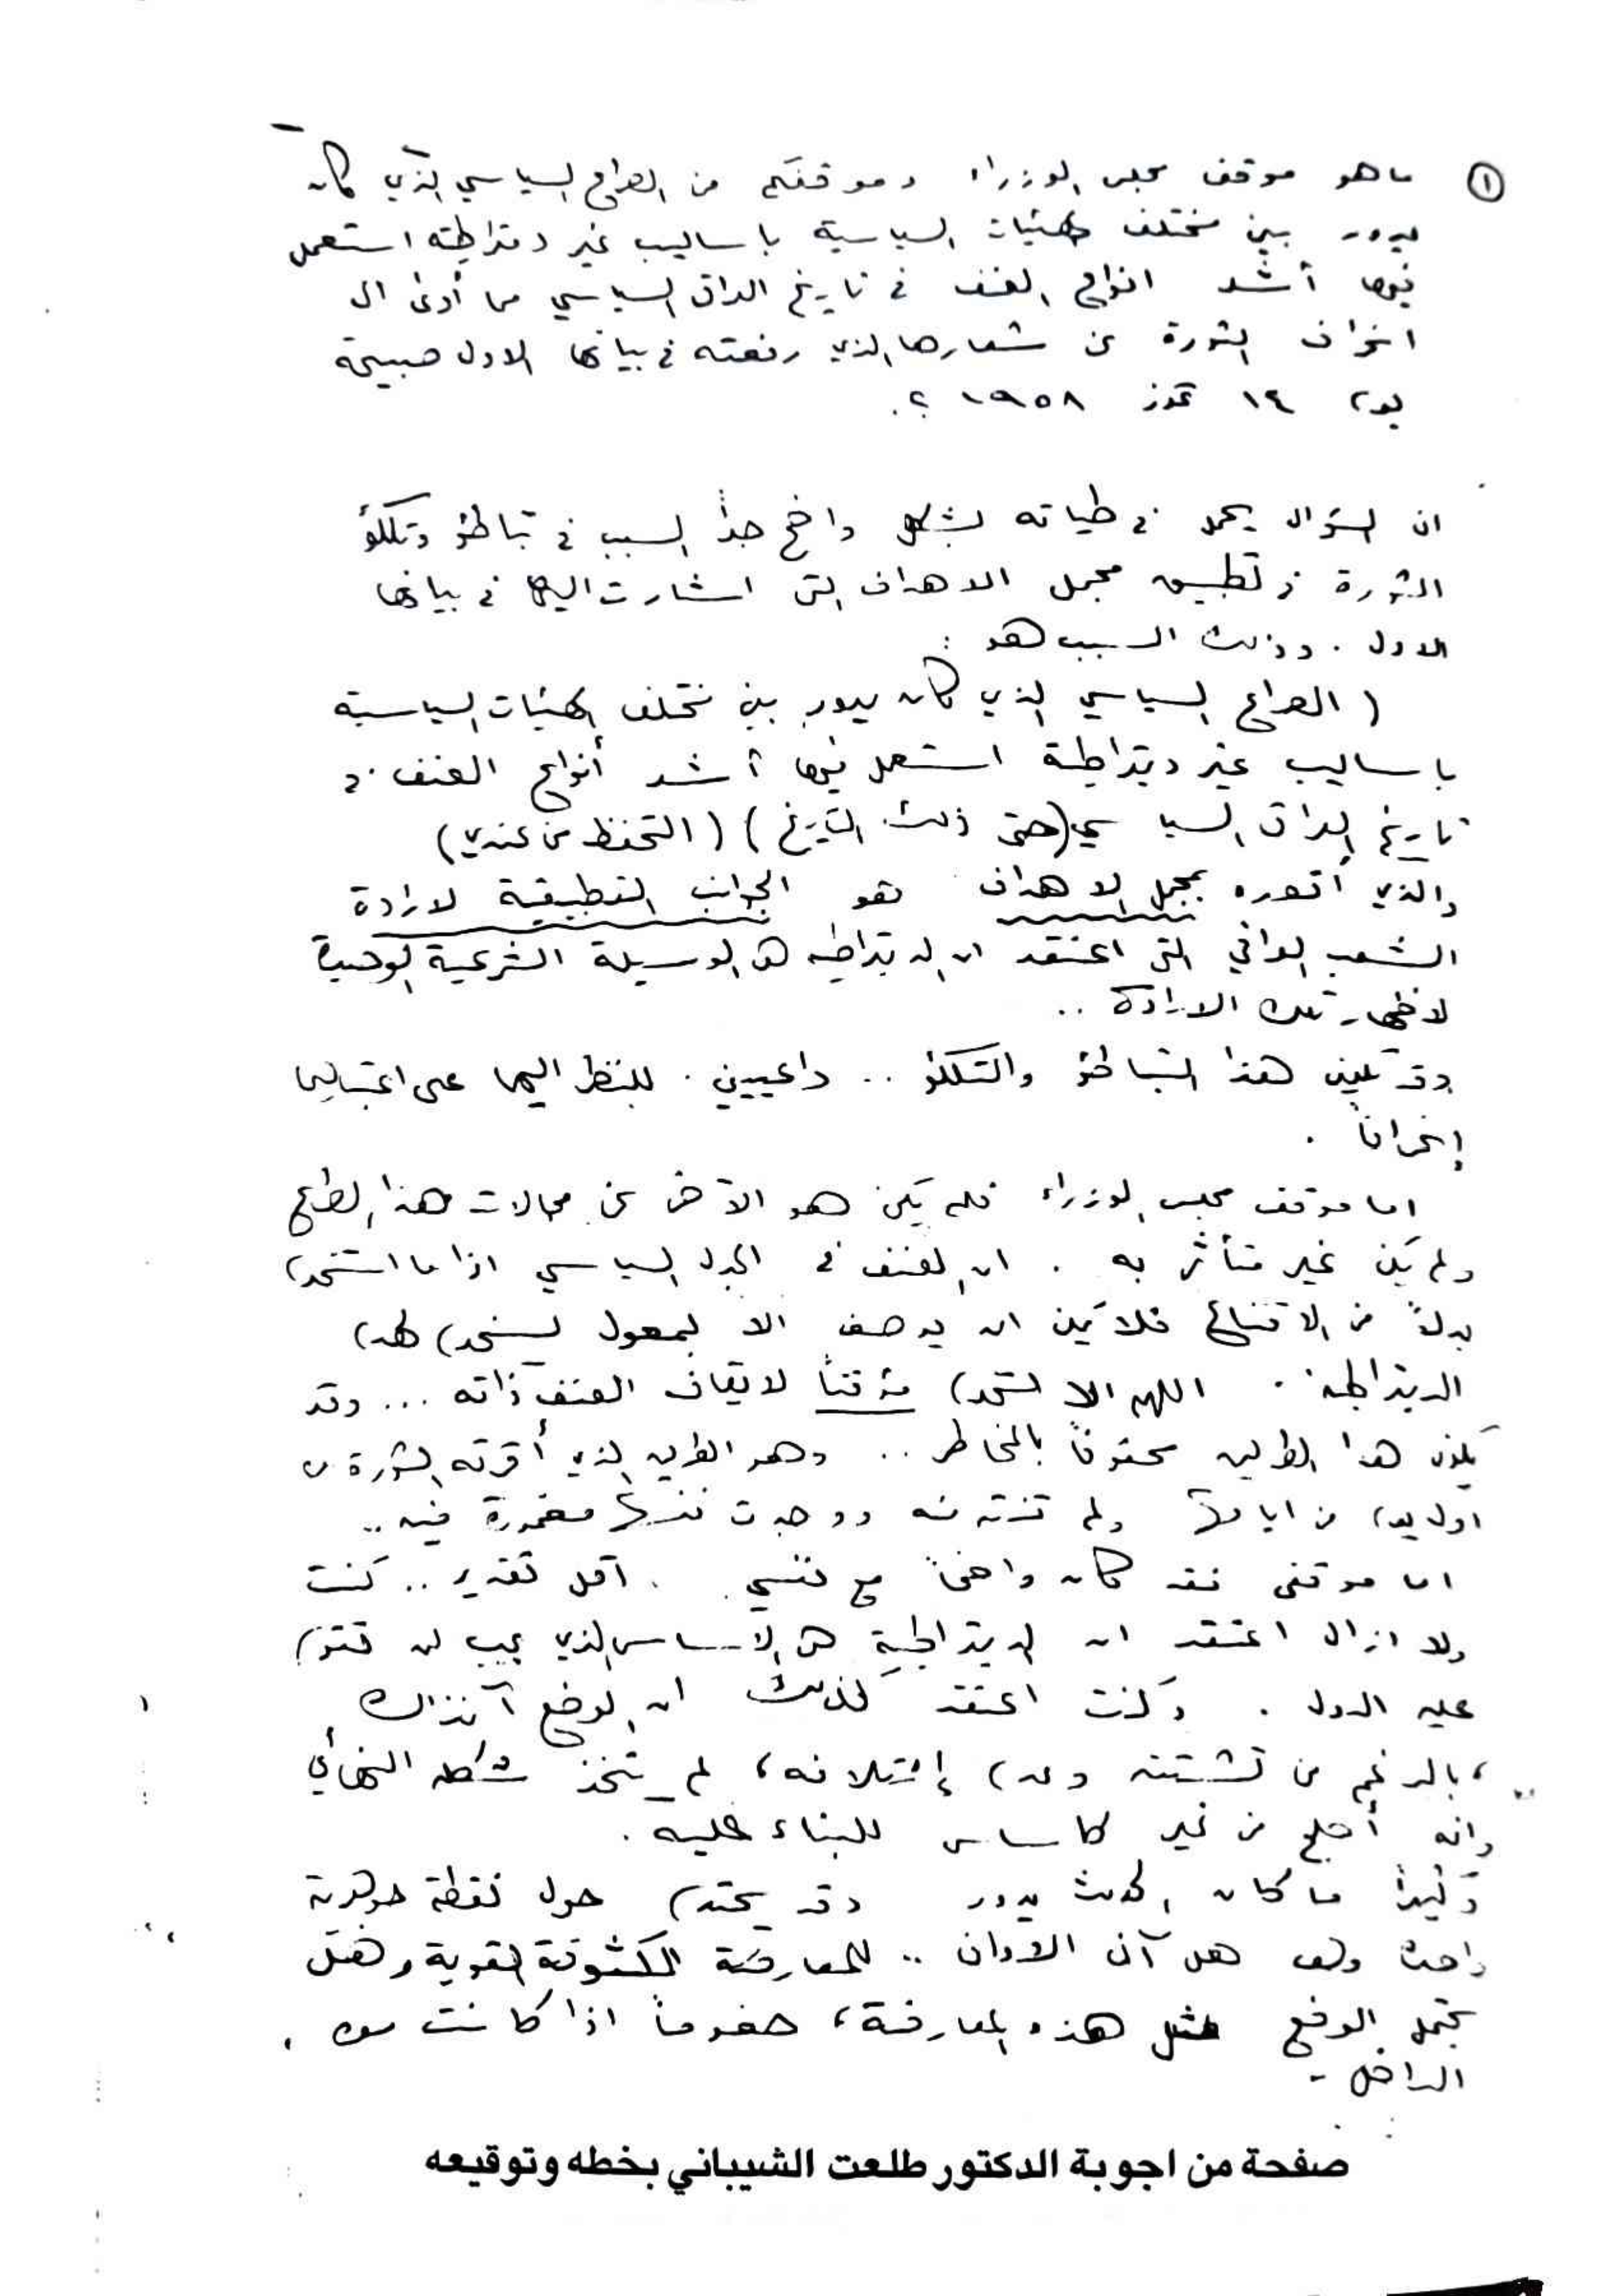 ① ما هو موقف مجلس الوزراء وموقفكم من الصراع السياسي الذي كان
يدور بين مختلف الهيئات السياسية باساليب غير دمقراطية استعمل
فيها أشد انواع العنف في تاريخ العراق السياسي مما أدى الى
انحراف الثورة عن شعارها الذي رفعته في بيانها الاول صبيحة
يوم ١٤ تموز ١٩٥٨ ؟.
ان السؤال يحمل في طياته بشكل واضح جداً السبب في تباطؤ وتلكؤ
الثورة في تطبيق مجمل الاهداف التي اشارت اليها في بيانها
الاول . وذلك السبب هو :
( الصراع السياسي الذي كان يدور بين مختلف الهيئات السياسية
باساليب غير ديمقراطية استعمل فيها أشد أنواع العنف في
تاريخ العراق السياسي (حتى ذلك التاريخ) (التحفظ من عندي)
والذي أتصوره بمجمل الاهداف هو الجوانب التطبيقية لارادة
الشعب العراقي التي اعتقد ان الديمقراطية هي الوسيلة الشرعية الوحيدة
لاظهار تلك الارادة ..
وقد يكون هذا التباطؤ والتلكؤ .. داعيين . للنظر اليهما على اعتبارهما
إنحرافاً .
اما موقف مجلس الوزراء فلم يكن هو الآخر عن مجالات هذا الصراع
ولم يكن غير متأثر به . ان العنف في الجدل السياسي اذا ما استخدم
بدلاً من الاقناع فلا يمكن ان يوصف الا بمعول يستخدم لهدم
الديمقراطية . اللهم الا ليستخدم مؤقتاً لايقاف العنف ذاته ... وقد
يكون هذا الطريق محفوفاً بالمخاطر .. وهو الطريق الذي أقرته الثورة من
اول يوم من ايامها ولم تنته منه ووجدت نفسها مغمورة فيه ..
اما موقفي فقد كان واضحاً مع نفسي . أقل تقدير .. كنت
ولا ازال اعتقد ان الديمقراطية هي الاساس الذي يجب ان تقوم
عليه الدول . وكنت اعتقد كذلك ان الوضع آنذاك
، بالرغم من تشتته وعدم إئتلافه ، لم يتخذ شكله النهائي
وانه أصلح من غيره كاساس للبناء عليه .
وكثيراً ما كان الحديث يدور وقد يحتدم حول نقطة جوهرية
واحدة وهي هل آن الاوان .. للمعارضة المكشوفة القوية وهل
يتحمل الوضع مثل هذه المعارضة ، خصوصاً اذا كانت من
الداخل .
صفحة من اجوبة الدكتور طلعت الشيباني بخطه وتوقيعه